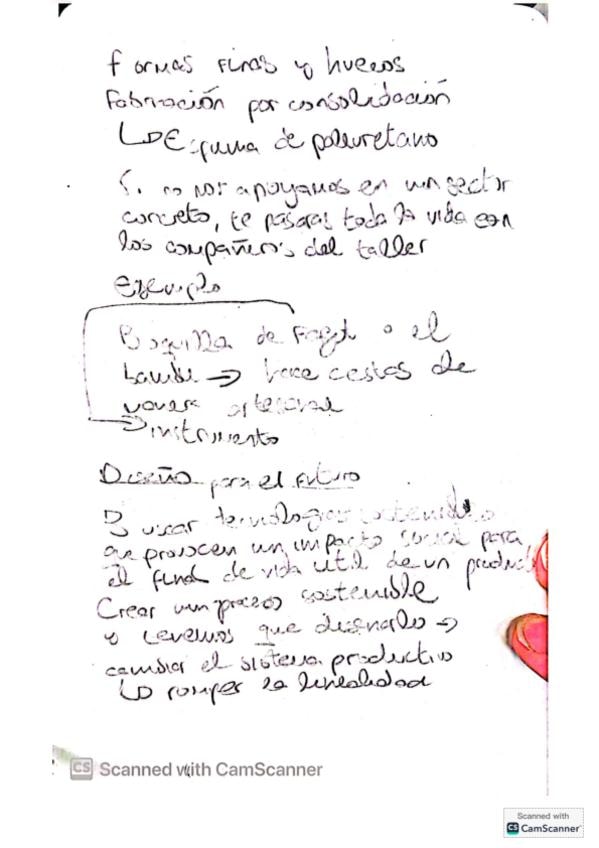 formas finas y huecos
Fabricación por consolidación
↳ Espuma de poliuretano
Si no nos apoyamos en un sector
concreto, te pasaras toda la vida con
los compañeros del taller
Ejemplo
Boquilla de Fagot o el
bambú → hace cestas de
manera artesanal
→ instrumento
Diseño para el futuro
Buscar tecnologías sostenibles
que provocen un impacto social para
el final de vida util de un produc
Crear un proceso sostenible
y tenemos que diseñarlo →
cambiar el sistema productivo
↳ romper la linealidad
CS Scanned with CamScanner
Scanned with
CS CamScanner